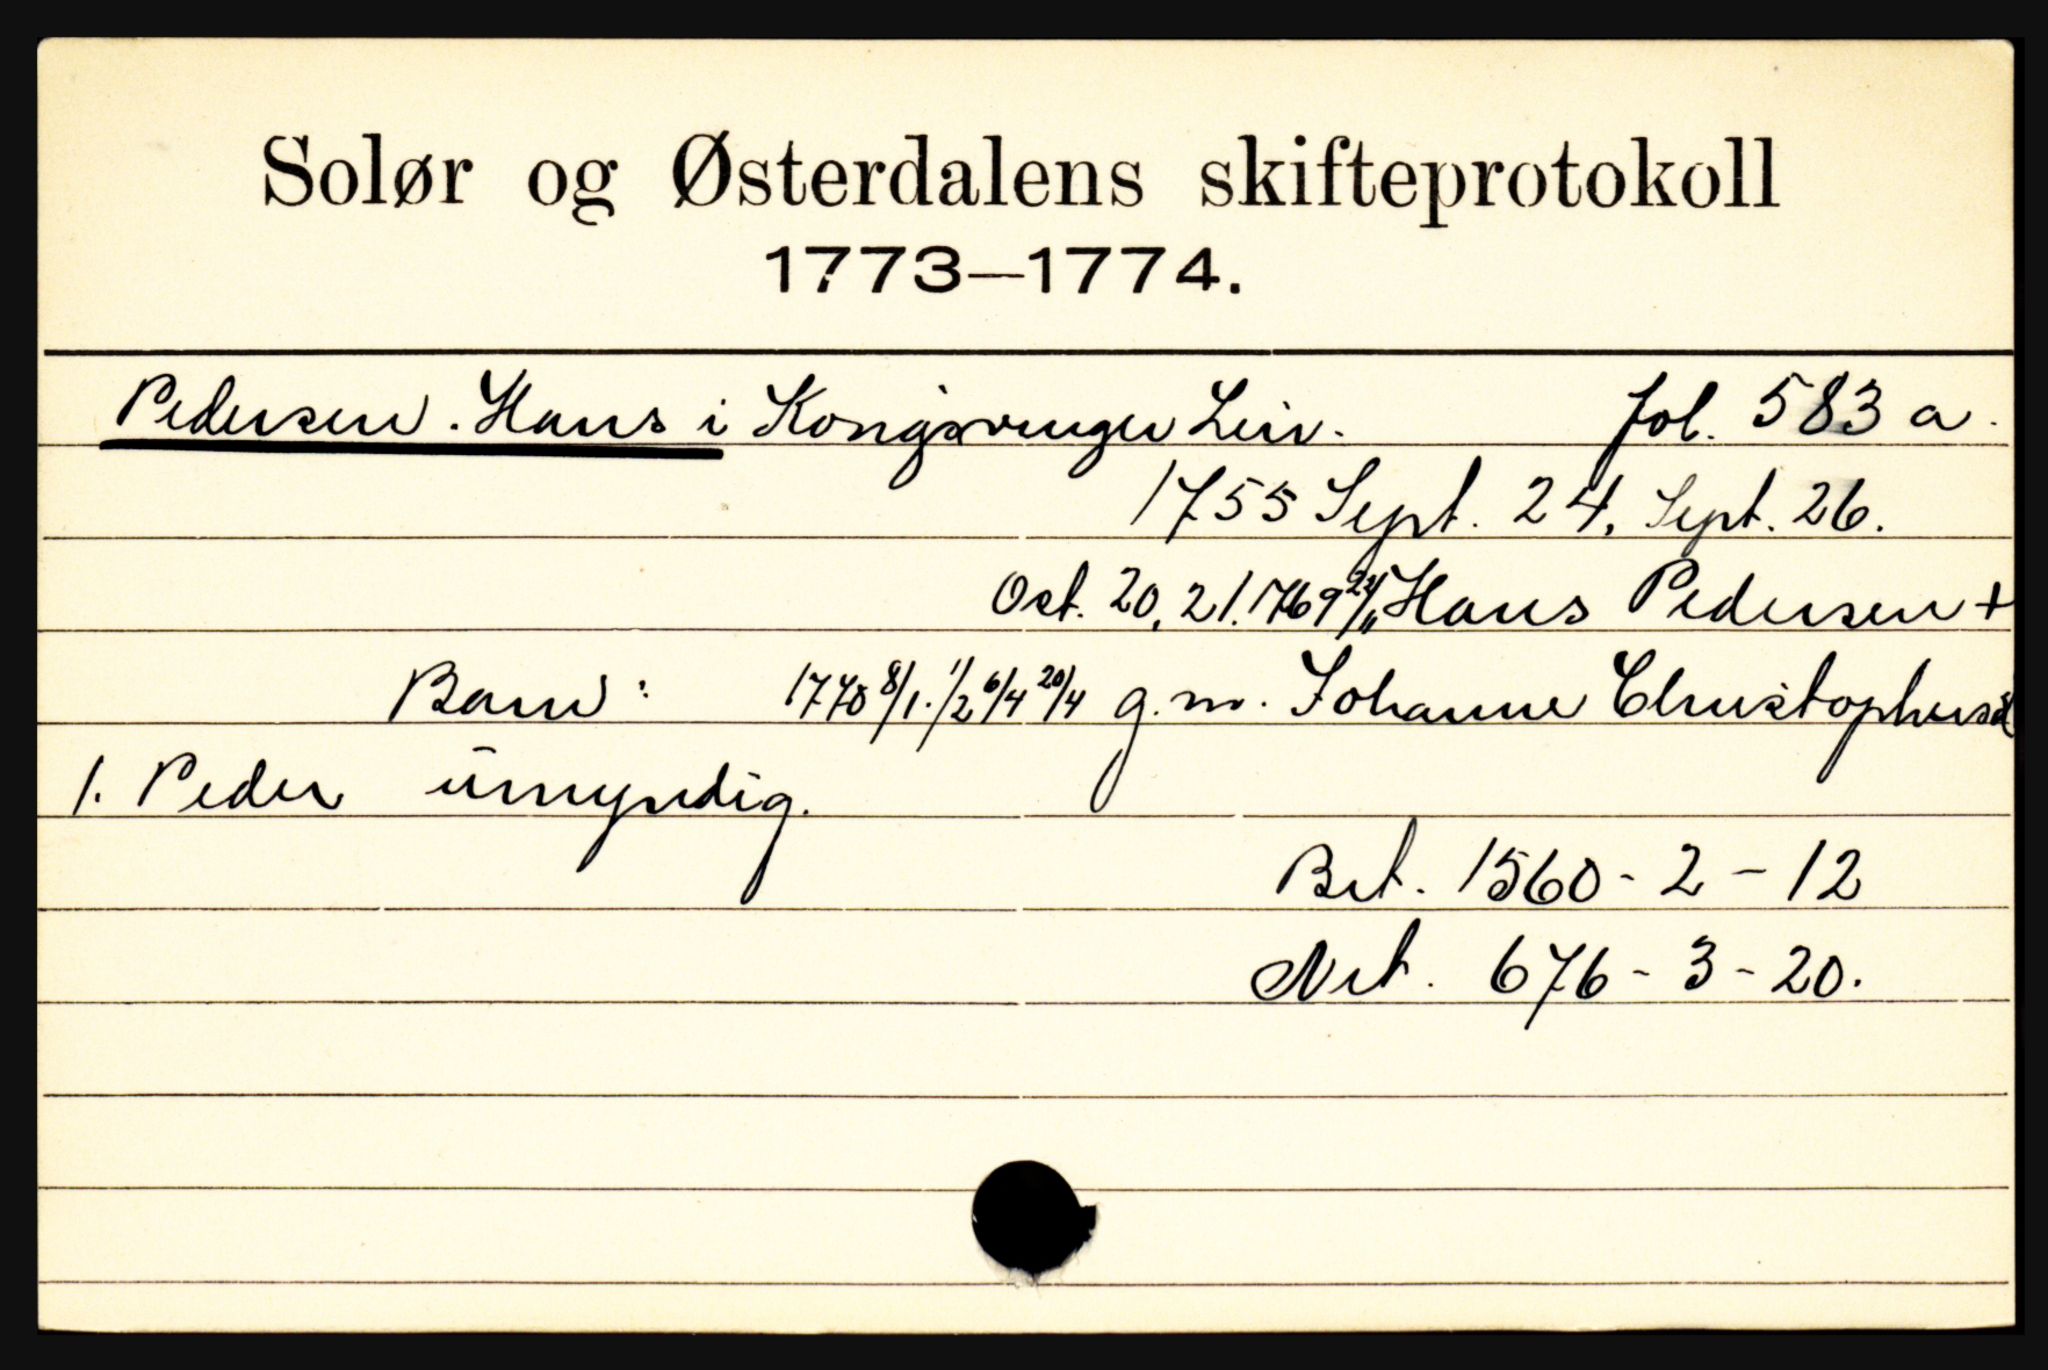 Solør og Østerdalens skifteprotokoll
1773—1774.
Pedersen. Hans i Kongsvinger Leir. fol. 583 a.
1755 Sept. 24, Sept. 26.
Oct. 20, 21. 1769 22/11 Hans Pedersen +
Barn: 1770 8/1. 1/2 6/4 20/4 g. m. Johanne Christophersd
1. Peder umyndig.
Brt. 1560 - 2 - 12
Net. 676 - 3 - 20.